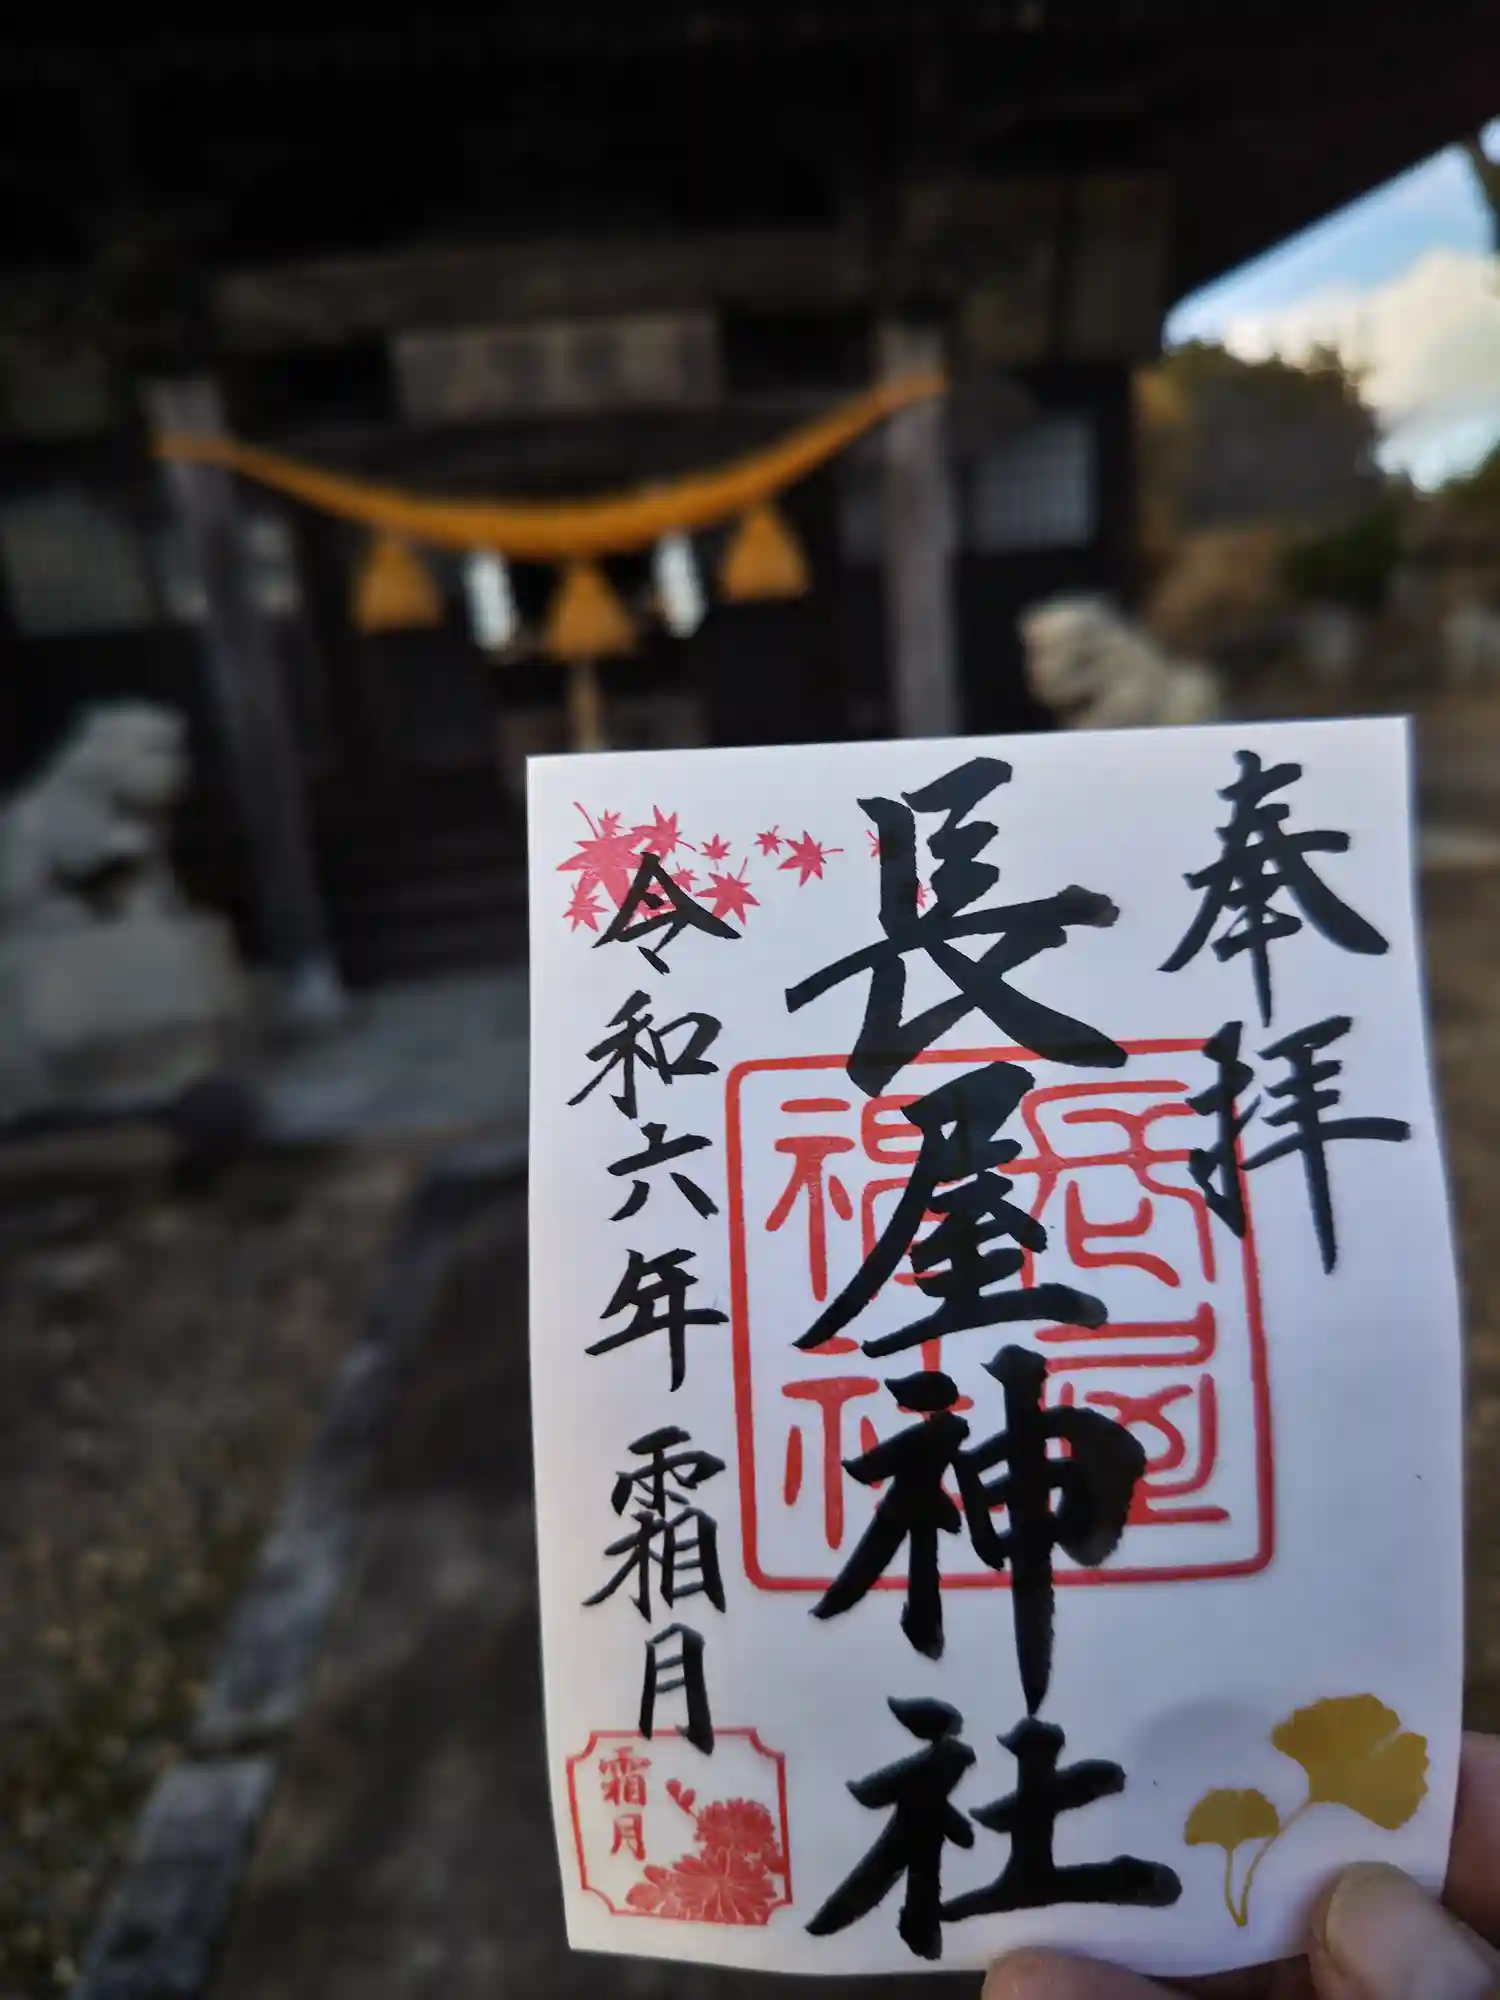 奉拝
長屋神社
長屋
神社
令和六年 霜月
霜月